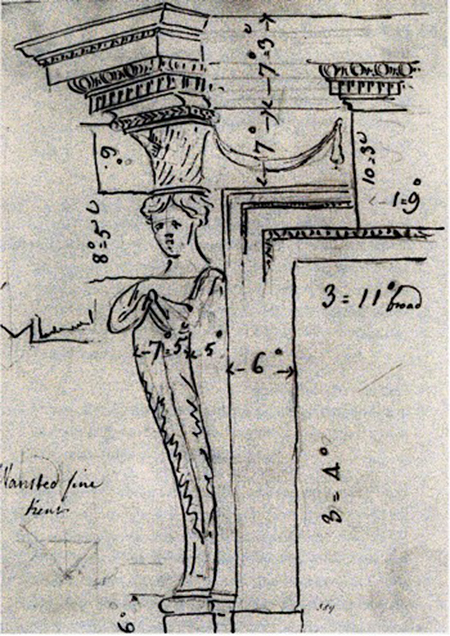 7°=3
7°
.6
10=3°
1=9°
8°=5
3=11° broad
7°=5
5°
6°
3=4°
Wansted fine
6°